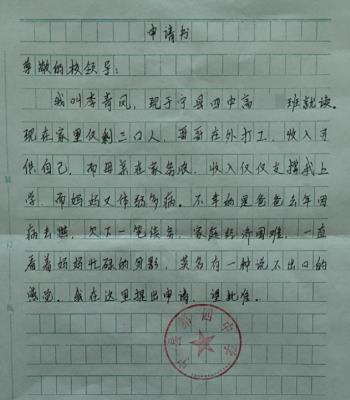 申请书
尊敬的校领导：
我叫李青凤，现于宁县四中高 班就读。
现在家里仅剩三口人，哥哥在外打工，收入可
供自己，而母亲在家务农，收入仅仅支撑我上
学，而妈妈又体弱多病。不幸的是爸爸去年因
病去世，欠下一笔债务，家庭经济困难，一直
看着妈妈忙碌的身影，莫名有一种说不出口的
感觉。我在这里提出申请，望批准。
宁县第四中学